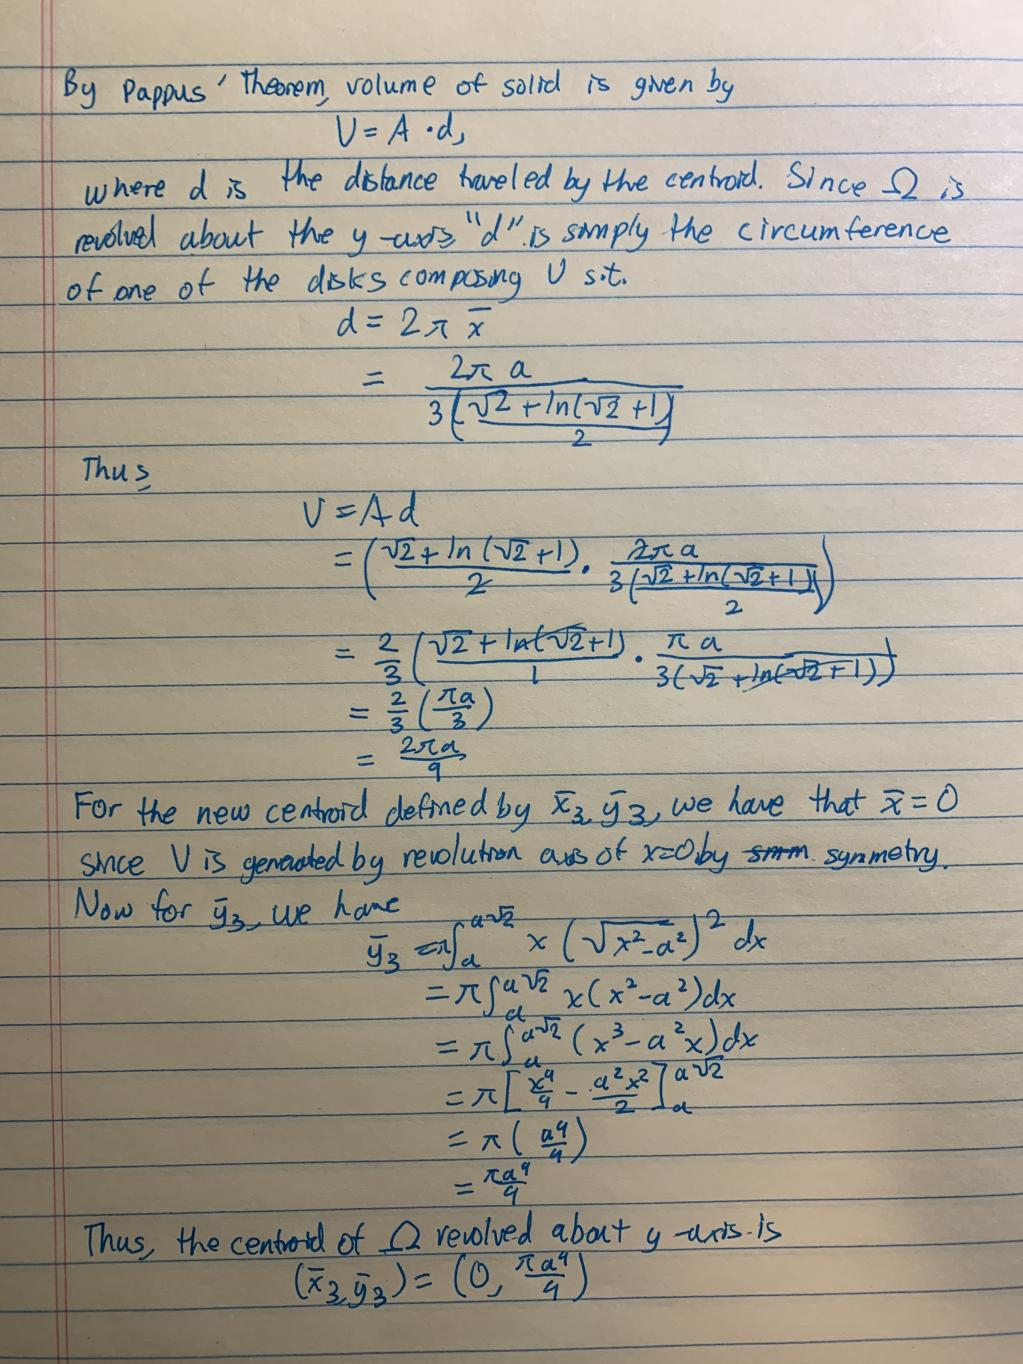 By Pappus' Theorem, volume of solid is given by
V = A · d,
where d is the distance traveled by the centroid. Since Ω is
revolved about the y-axis "d" is simply the circumference
of one of the disks composing V s.t.
d = 2π x̄
= 2π a / 3((√2 + ln(√2 + 1))/2)
Thus,
V = A d
= ((√2 + ln(√2 + 1))/2 · 2π a / 3((√2 + ln(√2 + 1))/2))
= 2/3 ((√2 + ln(√2 + 1))/1 · π a / 3(√2 + ln(√2 + 1)))
= 2/3 (πa/3)
= 2πa/9
For the new centroid defined by x̄₃, ȳ₃, we have that x̄ = 0
since V is generated by revolution axis of x=0, by symmetry.
Now for ȳ₃, we have
ȳ₃ = π∫ₐ^(a√2) x (√(x²-a²))² dx
= π∫ₐ^(a√2) x(x²-a²)dx
= π∫ₐ^(a√2) (x³-a²x)dx
= π[x⁴/4 - a²x²/2]ₐ^(a√2)
= π(a⁴/4)
= πa⁴/4
Thus, the centroid of Ω revolved about y-axis is
(x̄₃, ȳ₃) = (0, πa⁴/4)